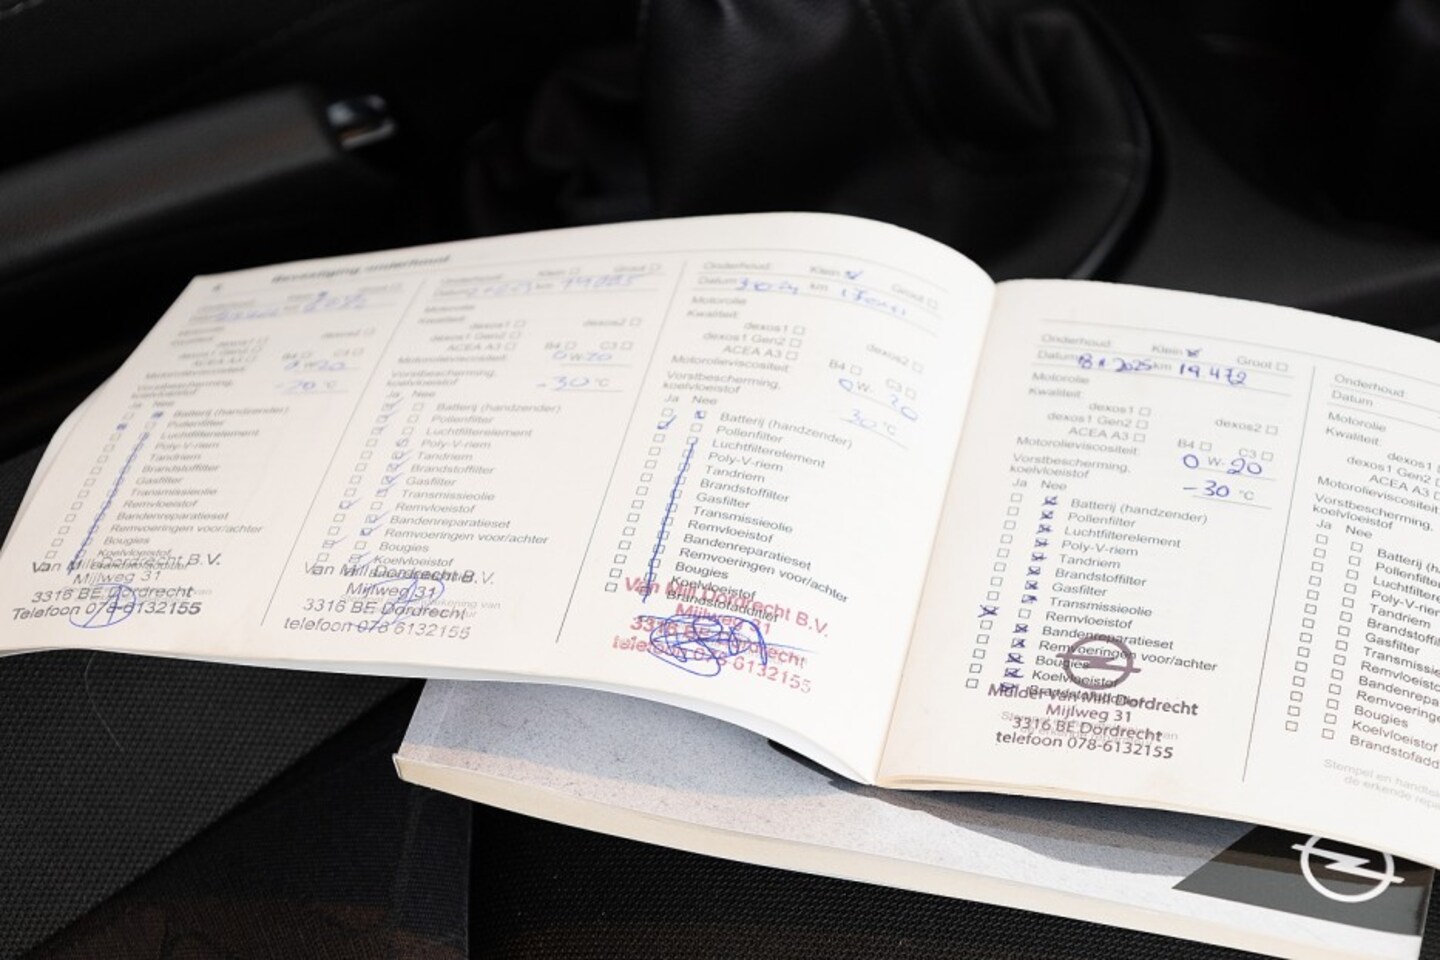 4 Bevestiging onderhoud
dexos2
dexos1
dexos1 Gen2
ACEA A3
B4 C3
Motorolieviscositeit: 0 W-20
Vorstbescherming,
koelvloeistof -20 °C
Ja Nee
Batterij (handzender)
Pollenfilter
Luchtfilterelement
Poly-V-riem
Tandriem
Brandstoffilter
Gasfilter
Transmissieolie
Remvloeistof
Bandenreparatieset
Remvoeringen voor/achter
Bougies
Koelvloeistof
Van Mill Dordrecht B.V.
Mijlweg 31
3316 BE Dordrecht
Telefoon 078-6132155
Onderhoud: Klein Groot
Datum km
Motorolie
Kwaliteit:
dexos1 dexos2
dexos1 Gen2
ACEA A3 B4 C3
Motorolieviscositeit: 0 W-20
Vorstbescherming,
koelvloeistof -30 °C
Ja Nee
Batterij (handzender)
Pollenfilter
Luchtfilterelement
Poly-V-riem
Tandriem
Brandstoffilter
Gasfilter
Transmissieolie
Remvloeistof
Bandenreparatieset
Remvoeringen voor/achter
Bougies
Koelvloeistof
Van Mill Dordrecht B.V.
Mijlweg 31
3316 BE Dordrecht
telefoon 078 6132155
Onderhoud: Klein Groot
Datum km
Motorolie
Kwaliteit:
dexos1 dexos2
dexos1 Gen2
ACEA A3 B4 C3
Motorolieviscositeit: 0 W-20
Vorstbescherming,
koelvloeistof 30 °C
Ja Nee
Batterij (handzender)
Pollenfilter
Luchtfilterelement
Poly-V-riem
Tandriem
Brandstoffilter
Gasfilter
Transmissieolie
Remvloeistof
Bandenreparatieset
Remvoeringen voor/achter
Bougies
Koelvloeistof
Brandstofadditief
Van Mill Dordrecht B.V.
Mijlweg 31
3316 BE Dordrecht
telefoon 078-6132155
Onderhoud: Klein Groot
Datum 2025 km 19 472
Motorolie
Kwaliteit:
dexos1 dexos2
dexos1 Gen2
ACEA A3 B4 C3
Motorolieviscositeit: 0 W-20
Vorstbescherming,
koelvloeistof -30 °C
Ja Nee
Batterij (handzender)
Pollenfilter
Luchtfilterelement
Poly-V-riem
Tandriem
Brandstoffilter
Gasfilter
Transmissieolie
Remvloeistof
Bandenreparatieset
Remvoeringen voor/achter
Bougies
Koelvloeistof
Brandstofadditief
Mulder Van Mill Dordrecht
Mijlweg 31
3316 BE Dordrecht
telefoon 078-6132155
Onderhoud:
Datum
Motorolie
Kwaliteit:
dexos1
dexos1 Gen2
ACEA A3
Motorolieviscositeit
Vorstbescherming,
koelvloeistof
Ja Nee
Batterij (ha
Pollenfilter
Luchtfilte
Poly-V-r
Tandriem
Brandstoffi
Gasfilter
Transmissi
Remvloeist
Bandenrepa
Remvoering
Bougies
Koelvloeistof
Brandstofadd
Stempel en handte
de erkende repa